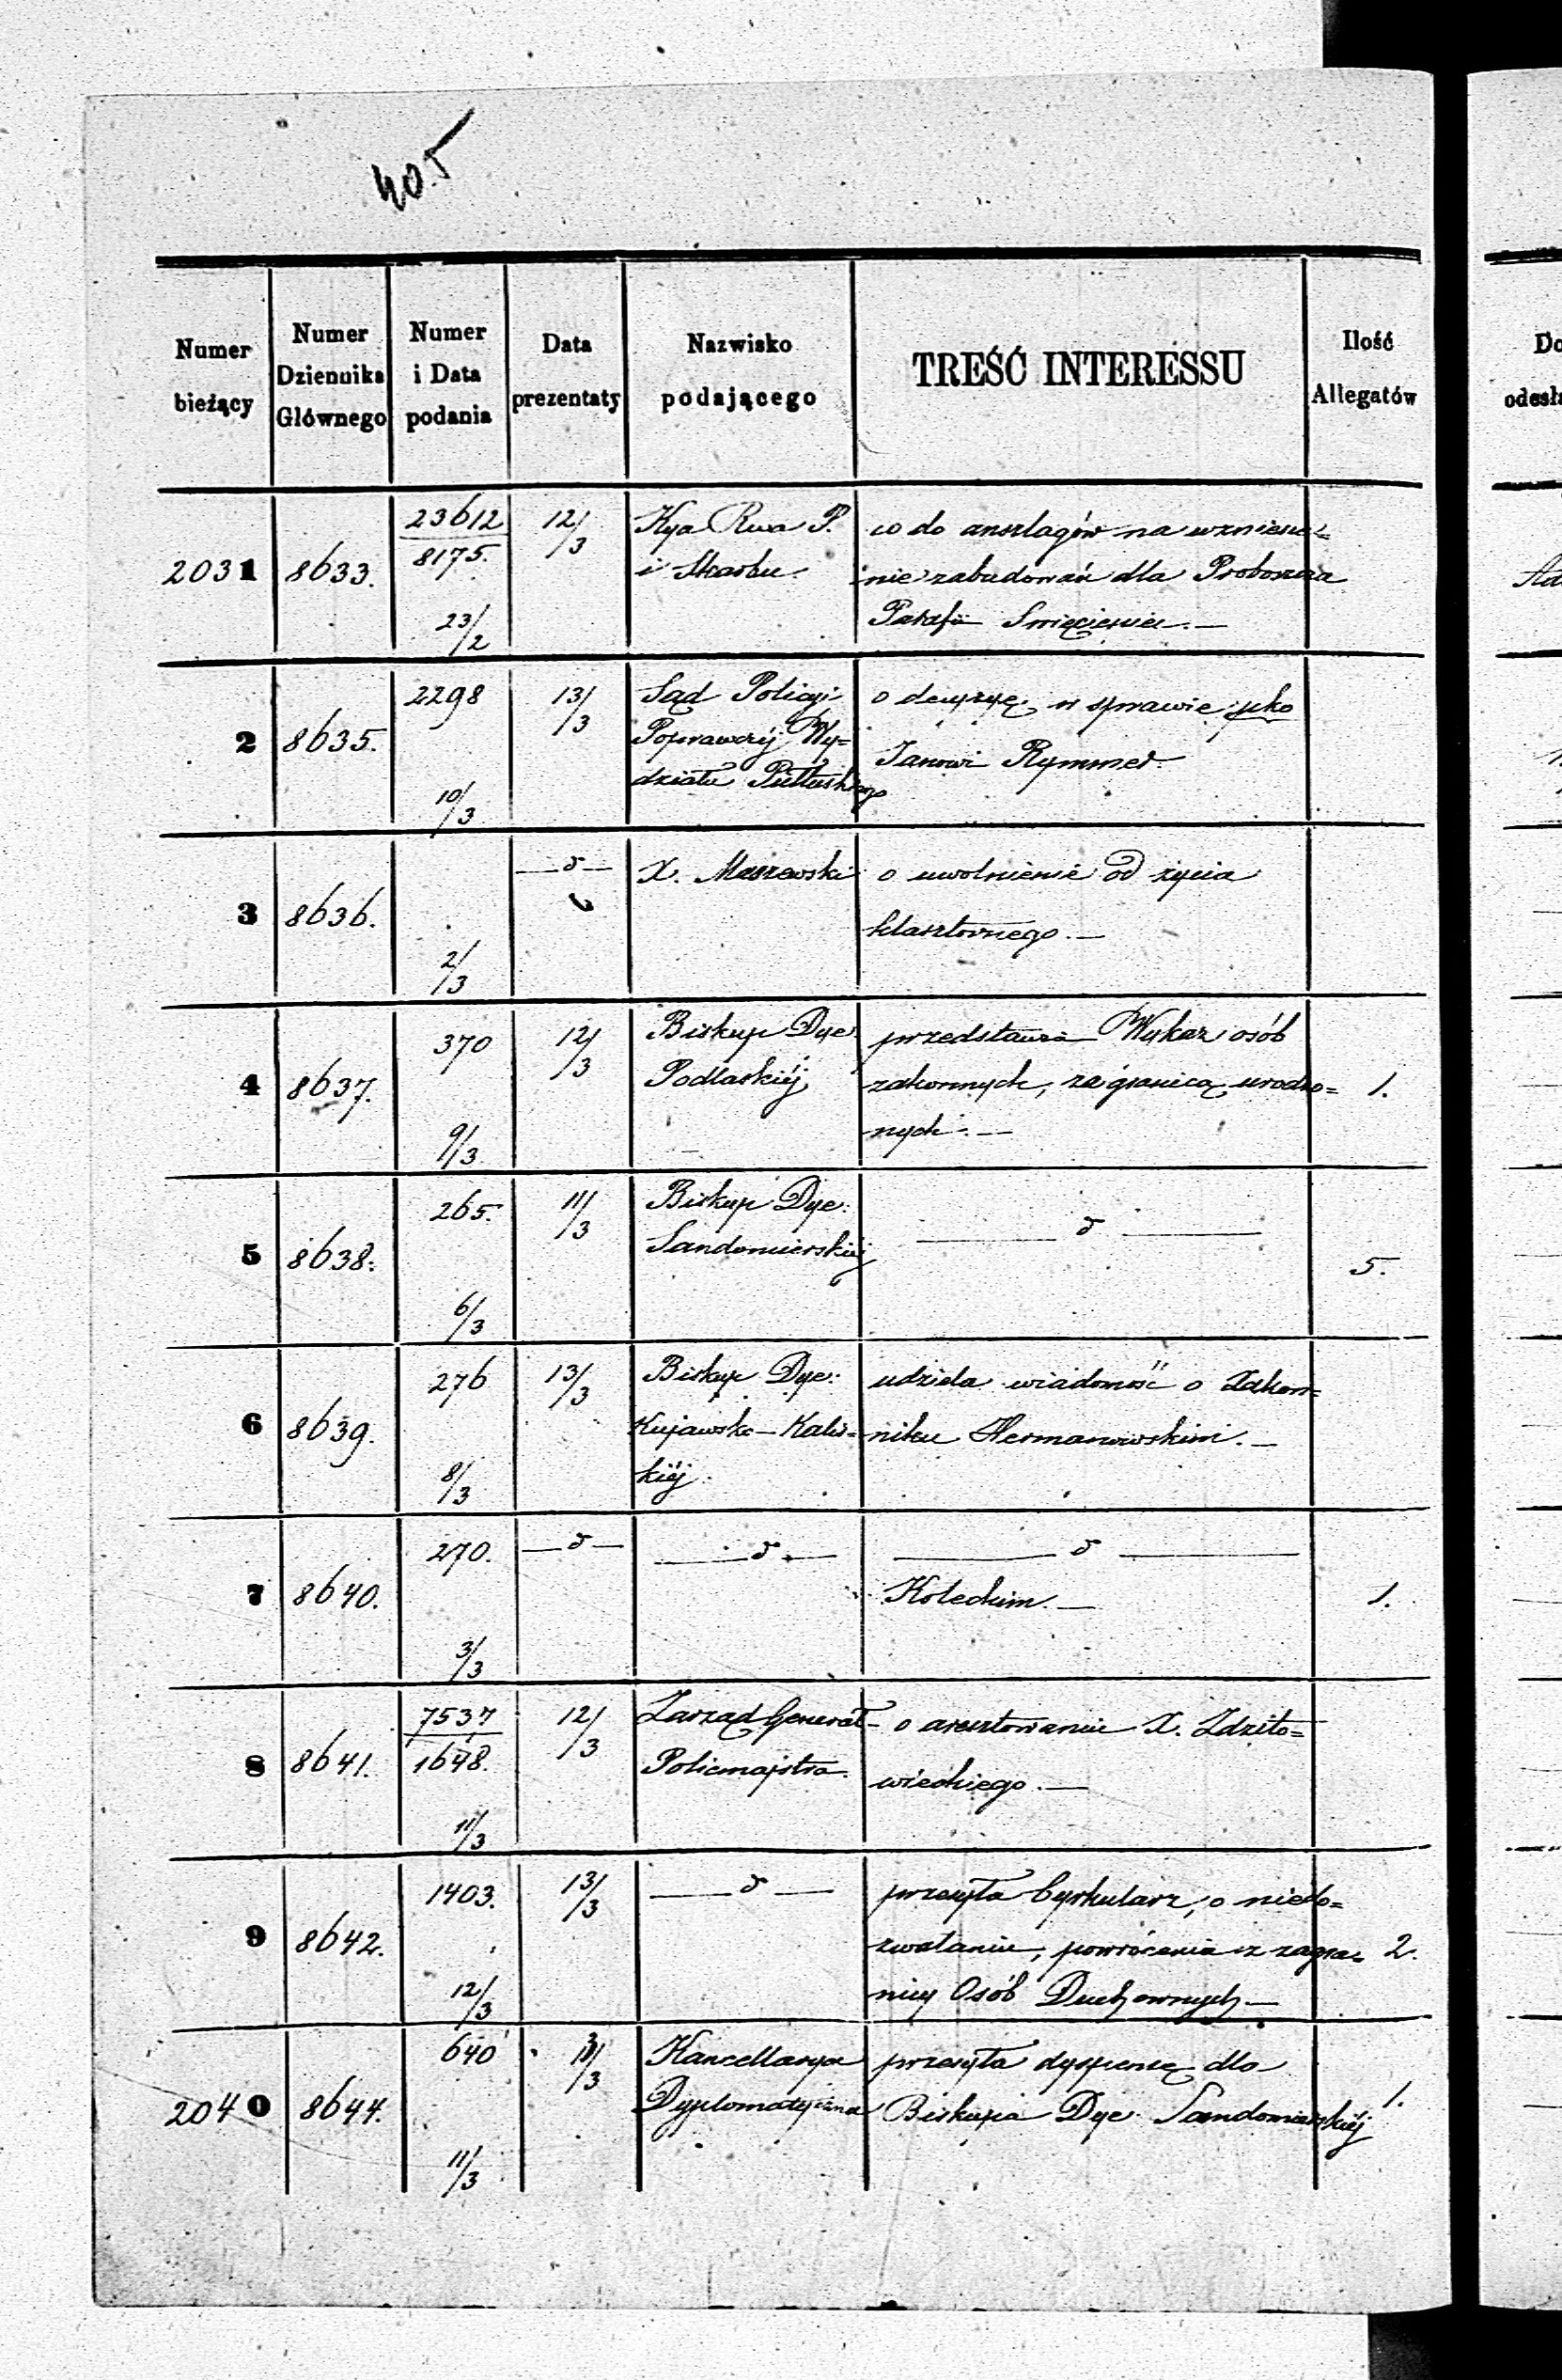 405
Numer bieżący | Numer Dziennika Głównego | Numer i Data podania | Data prezentaty | Nazwisko podającego | TREŚĆ INTERESSU | Ilość Allegatów
2031 | 8633. | 23612 / 8175. 23/2 | 12/3 | Kya Rwa P. | co do anszlagów na wzniesie=
i Skarbu. | nie zabudowań dla Proboszcza
Parafii Święcieniec. —
2 | 8635. | 2298 10/3 | 13/3 | Sąd Policyi | o decyzyę w sprawie pko
Poprawczéj Wy= | Janowi Rymmer.
działu Pułtuskiego
3 | 8636. | 2/3 | —d— | X. Maszewski | o uwolnienie od życia
klasztornego. —
4 | 8637. | 370 9/3 | 12/3 | Biskup Dye: | przedstawia Wykaz osób
Podlaskiéj | zakonnych, za granicą urodzo= | 1.
nych. —
5 | 8638. | 265. 6/3 | 11/3 | Biskup Dye: | —d— | 5.
Sandomierskiéj
6 | 8639. | 276 8/3 | 13/3 | Biskup Dye: | udziela wiadomość o Zakon=
Kujawsko-Kalis= | niku Hermanowskim. —
kiéj.
7 | 8640. | 270. 3/3 | —d— | —d— | —d—
Koleckim. — | 1.
8 | 8641. | 7537 / 1648. 11/3 | 12/3 | Zarząd Generał- | o aresztowaniu X. Zdzito=
Policmajstra. | wieckiego. —
9 | 8642. | 1403. 12/3 | 13/3 | —d— | przesyła Cyrkularz, o niedo=
zwalaniu, powrócenia z zagra= | 2.
nicy Osób Duchownych. —
2040 | 8644. | 640 11/3 | /3 | Kancellarya | przesyła dyspensę dla
Dyplomatyczna | Biskupa Dye. Sandomierskiéj | 1.
Do
odesła